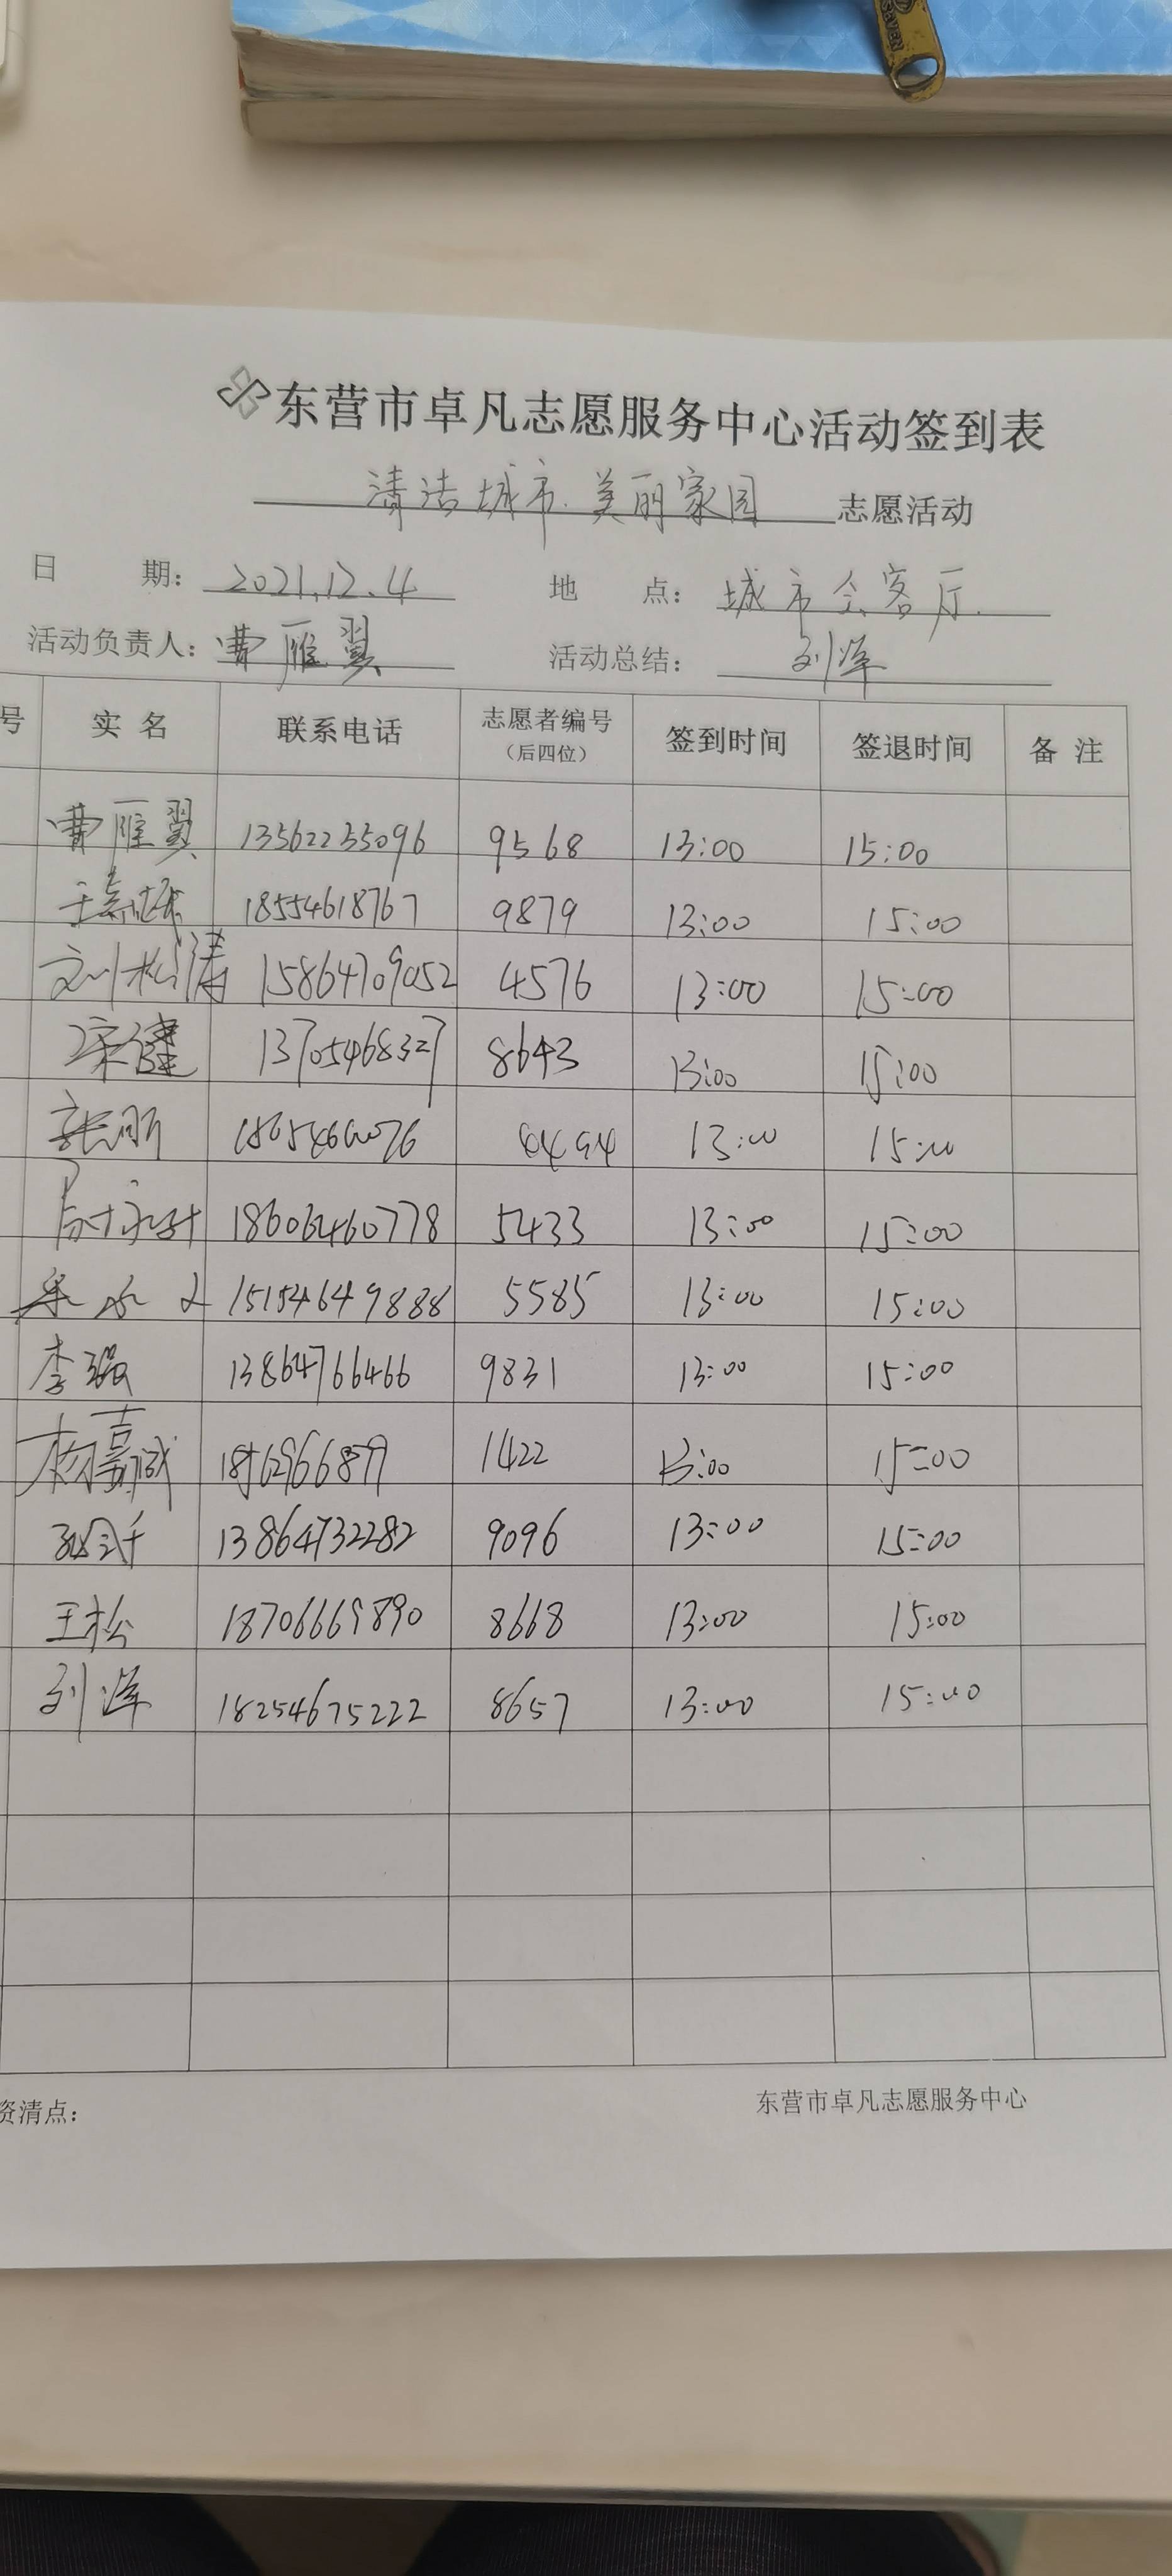 SEVEN
东营市卓凡志愿服务中心活动签到表
清洁城市.美丽家园 志愿活动
日 期: 2021.12.4 地 点: 城市会客厅.
活动负责人: 曹雁翼 活动总结: 刘洋
号 实名 联系电话 志愿者编号（后四位） 签到时间 签退时间 备注
曹雁翼 13562255096 9568 13:00 15:00
18554618767 9879 13:00 15:00
刘松涛 15864709052 4576 13:00 15:00
梁健 13705468327 8643 13:00 15:00
13:00 15:00
18606460778 5433 13:00 15:00
15154649888 5585 13:00 15:00
李强 13864766466 9831 13:00 15:00
杨嘉诚 1422 13:00 15:00
13864732282 9096 13:00 15:00
王松 18706669890 8668 13:00 15:00
刘洋 18254675222 8657 13:00 15:00
资清点:
东营市卓凡志愿服务中心